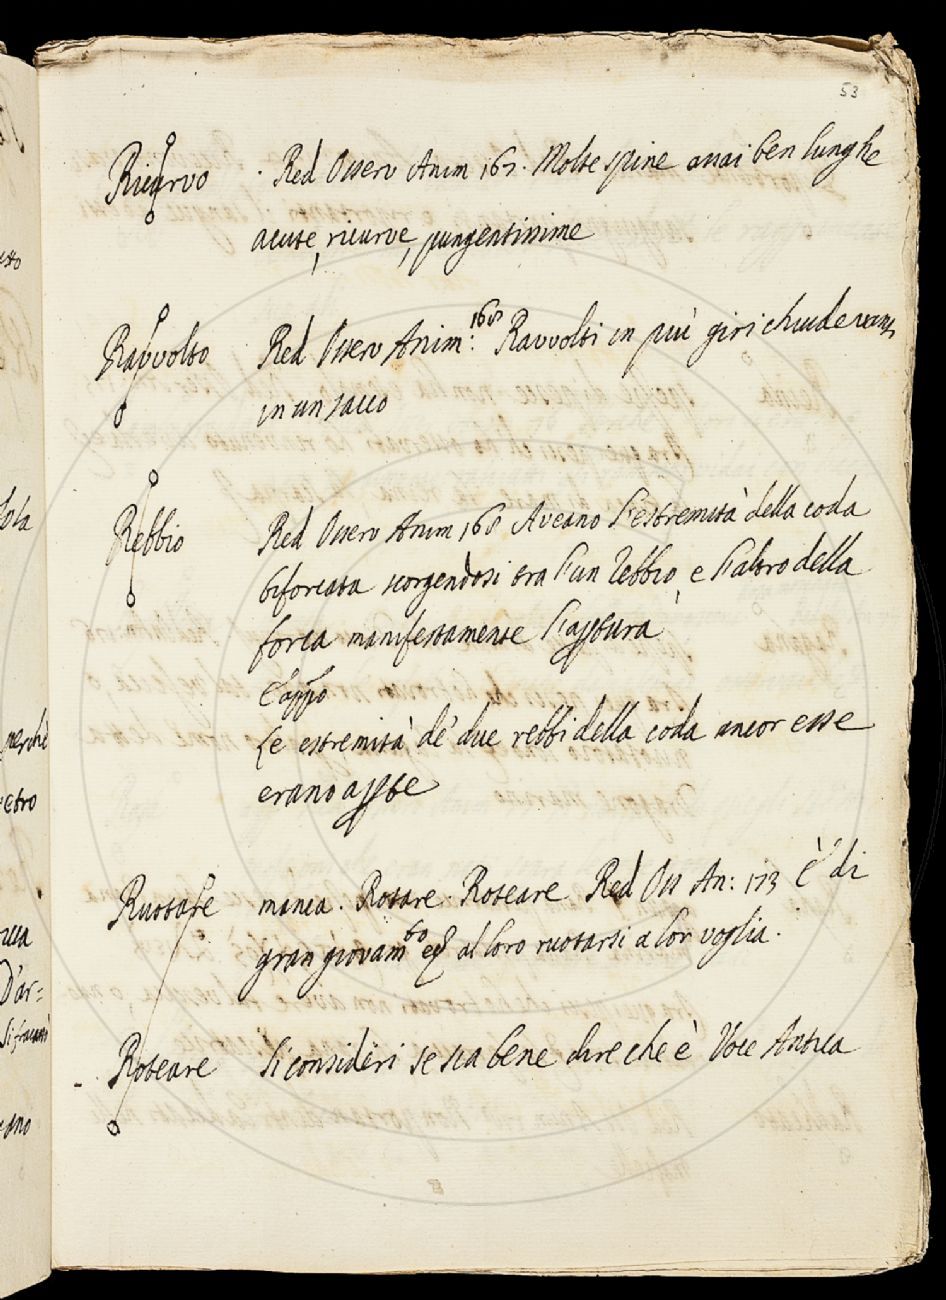 53
Ricurvo · Red Osserv Anim 167. Molte spine assai ben lunghe
acute, ricurve, pungentissime
Ravvolto Red Osserv Anim: 168 Ravvolti in più giri chiudevansi
in un sacco
Rebbio Red Osserv Anim 168 Aveano l'estremità della coda
biforcata scorgendosi tra l'un rebbio, e l'altro della
forca manifestamente l'appura
E appo
Le estremità de' due rebbi della coda ancor esse
erano
Ruotare manca. Rotare. Roteare. Red Oss An: 173 è di
gran giovam.to al loro ruotarsi a lor voglia.
- Roteare Si consideri se sta bene dire che è Voce Antica
sola
perchè
etro
D'ar=
ano